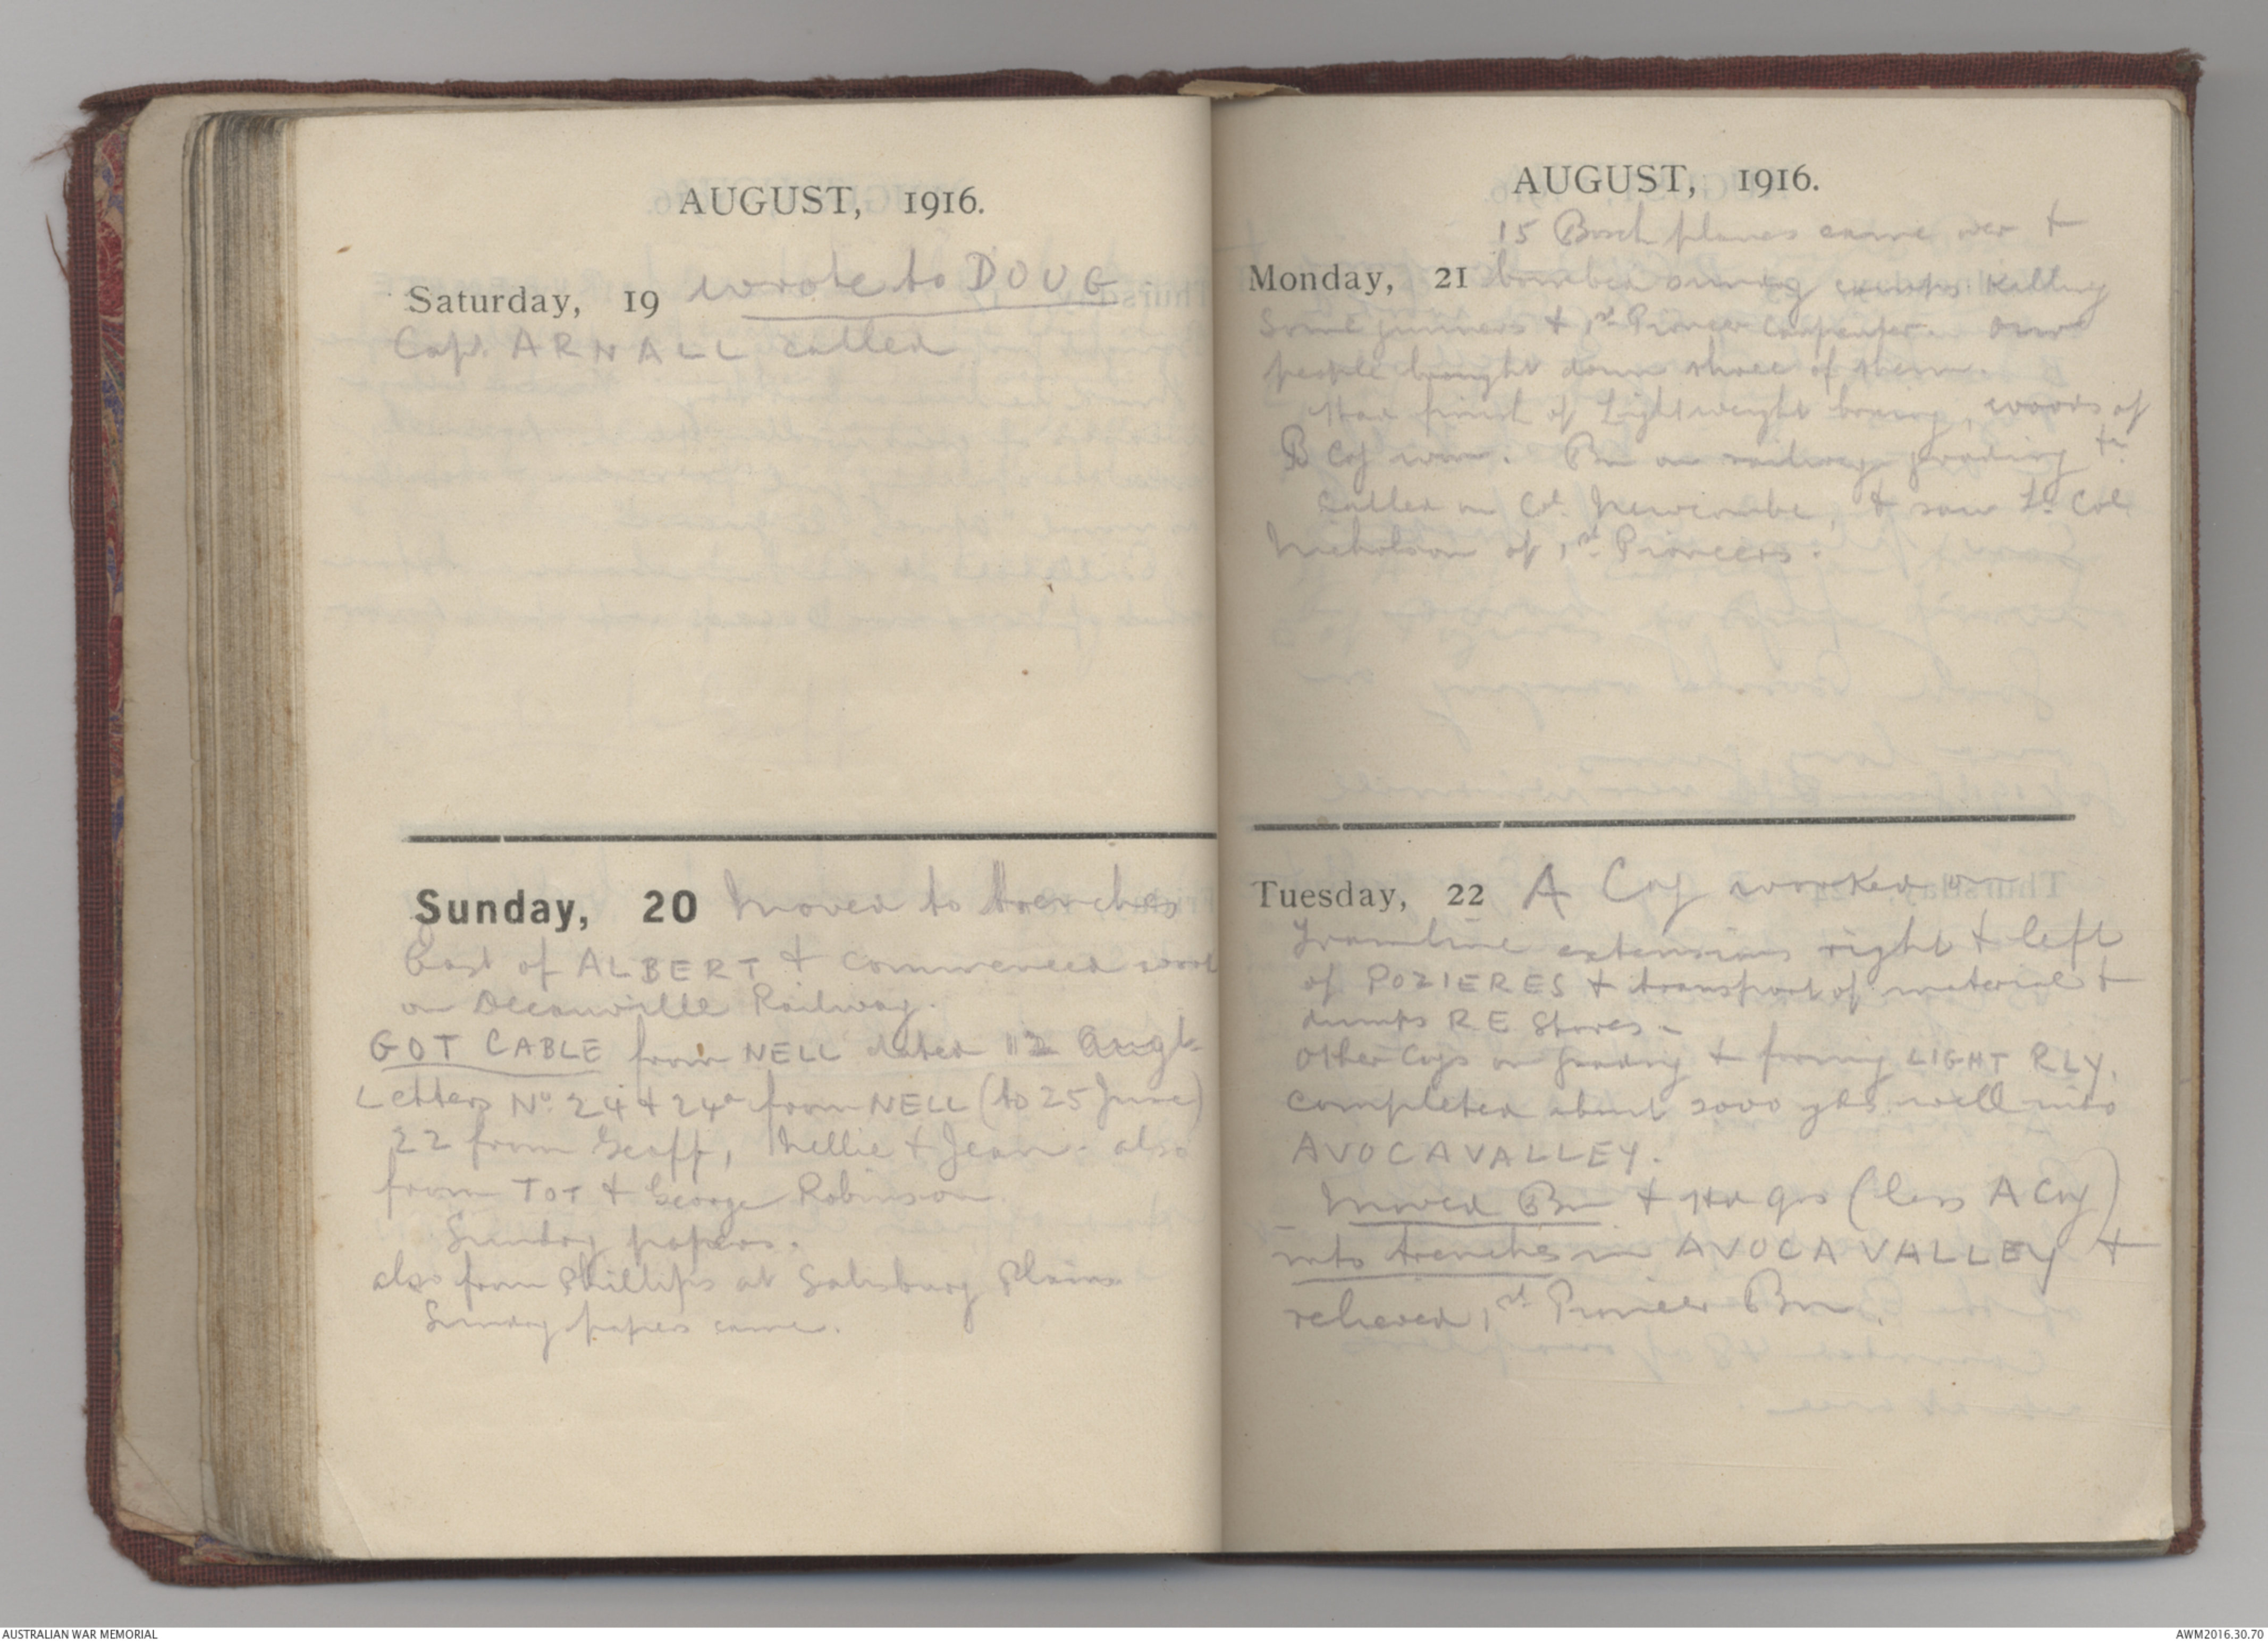 AUGUST, 1916.
Saturday, 19 wrote to DOUG
Capt. ARNALL called
Sunday, 20 Moved to trenches
East of ALBERT & commenced work
on Decauville Railway.
GOT CABLE from NELL dated 12 Augt.
Letters No. 24 & 24a from NELL (to 25 June)
22 from Geoff, Nellie & Jean. also
from TOT & George Robinson
Sunday papers.
also from Phillips at Salisbury Plains
Sunday papers came.
AUGUST, 1916.
15 Bosch planes came over &
Monday, 21 bombed camps killing
some gunners & 1st Pioneer Carpenter. Our
people brought down three of them.
Had finish of Lightweight boxing, Woods of
B Coy won. Bn on railway grading &c
Called on Col. Newcombe, & saw Lt. Col
Nicholson of 1st Pioneers.
Tuesday, 22 A Coy worked on
Tramline extensions right & left
of POZIERES & transport of material &
dumps R E Stores -
Other Coys on grading & forming LIGHT RLY.
Completed about 2000 yds. well into
AVOCA VALLEY.
Moved Bn & Hd qrs (less A Coy)
into trenches in AVOCA VALLEY &
relieved 1st Pioneer Bn.
AUSTRALIAN WAR MEMORIAL
AWM2016.30.70